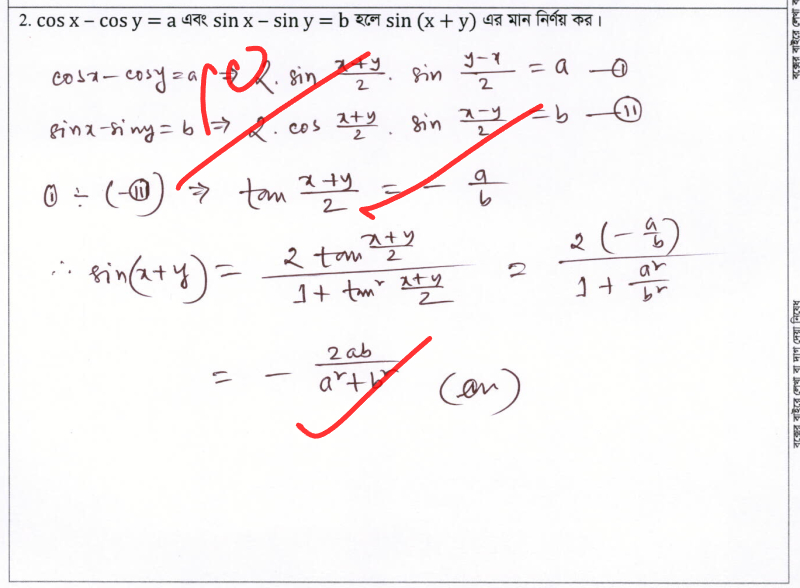 2. cos x – cos y = a এবং sin x – sin y = b হলে sin (x + y) এর মান নির্ণয় কর।
cosx – cosy = a ⇒ 2. sin (x+y)/2 . sin (y–x)/2 = a —(i)
sinx – siny = b ⇒ 2. cos (x+y)/2 . sin (x–y)/2 = b —(ii)
(i) ÷ (–(ii)) ⇒ tan (x+y)/2 = – a/b
∴ sin(x+y) = (2 tan (x+y)/2)/(1 + tan² (x+y)/2) = (2(– a/b))/(1 + a²/b²)
= – 2ab/(a²+b²) (an)